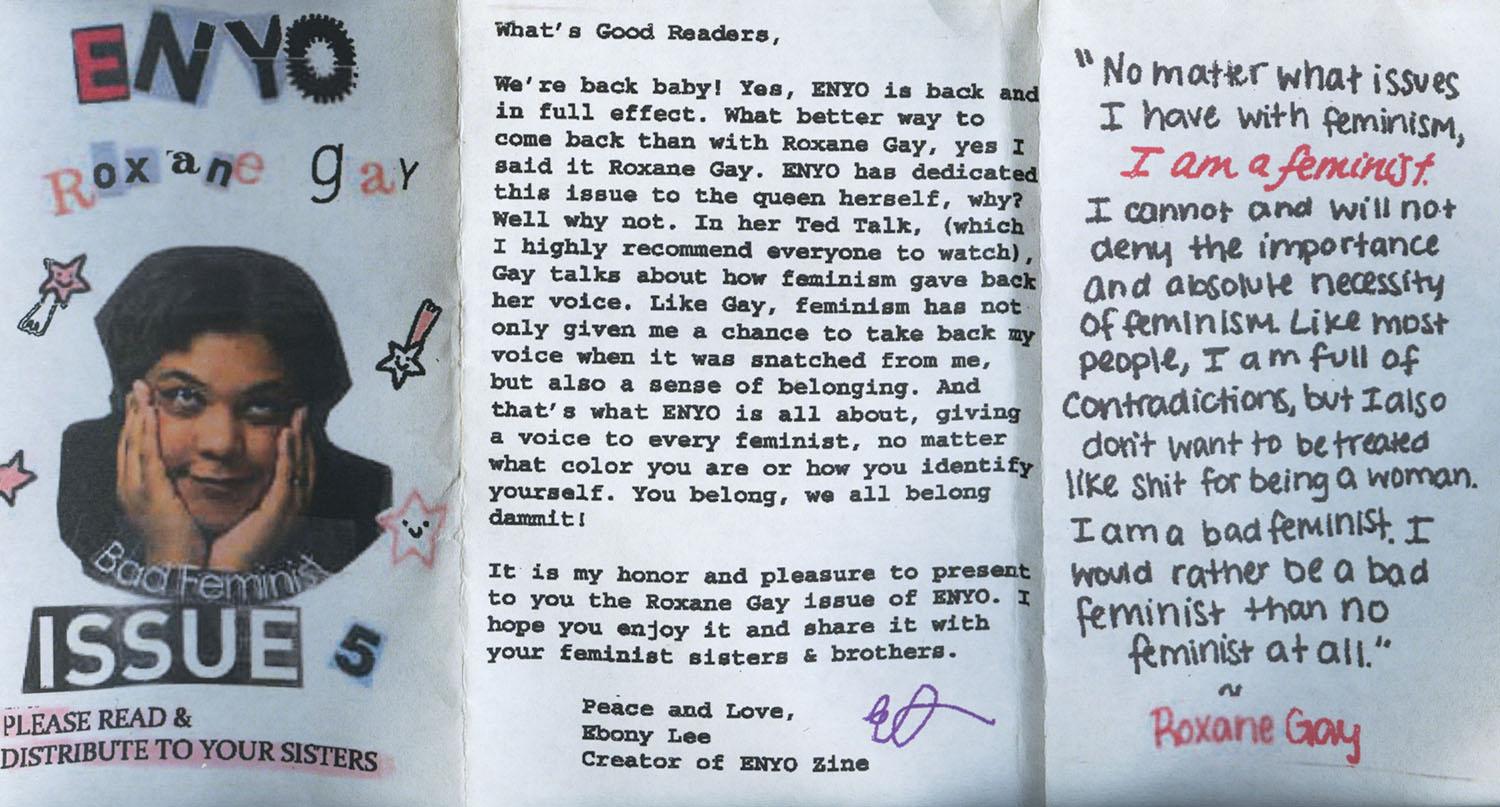 ENYO
Roxane gay
Bad Feminist
ISSUE 5
PLEASE READ &
DISTRIBUTE TO YOUR SISTERS
What's Good Readers,
We're back baby! Yes, ENYO is back and
in full effect. What better way to
come back than with Roxane Gay, yes I
said it Roxane Gay. ENYO has dedicated
this issue to the queen herself, why?
Well why not. In her Ted Talk, (which
I highly recommend everyone to watch),
Gay talks about how feminism gave back
her voice. Like Gay, feminism has not
only given me a chance to take back my
voice when it was snatched from me,
but also a sense of belonging. And
that's what ENYO is all about, giving
a voice to every feminist, no matter
what color you are or how you identify
yourself. You belong, we all belong
dammit!
It is my honor and pleasure to present
to you the Roxane Gay issue of ENYO. I
hope you enjoy it and share it with
your feminist sisters & brothers.
Peace and Love,
Ebony Lee
Creator of ENYO Zine
"No matter what issues
I have with feminism,
I am a feminist.
I cannot and will not
deny the importance
and absolute necessity
of feminism. Like most
people, I am full of
contradictions, but I also
don't want to be treated
like shit for being a woman.
I am a bad feminist. I
would rather be a bad
feminist than no
feminist at all."
~
Roxane Gay